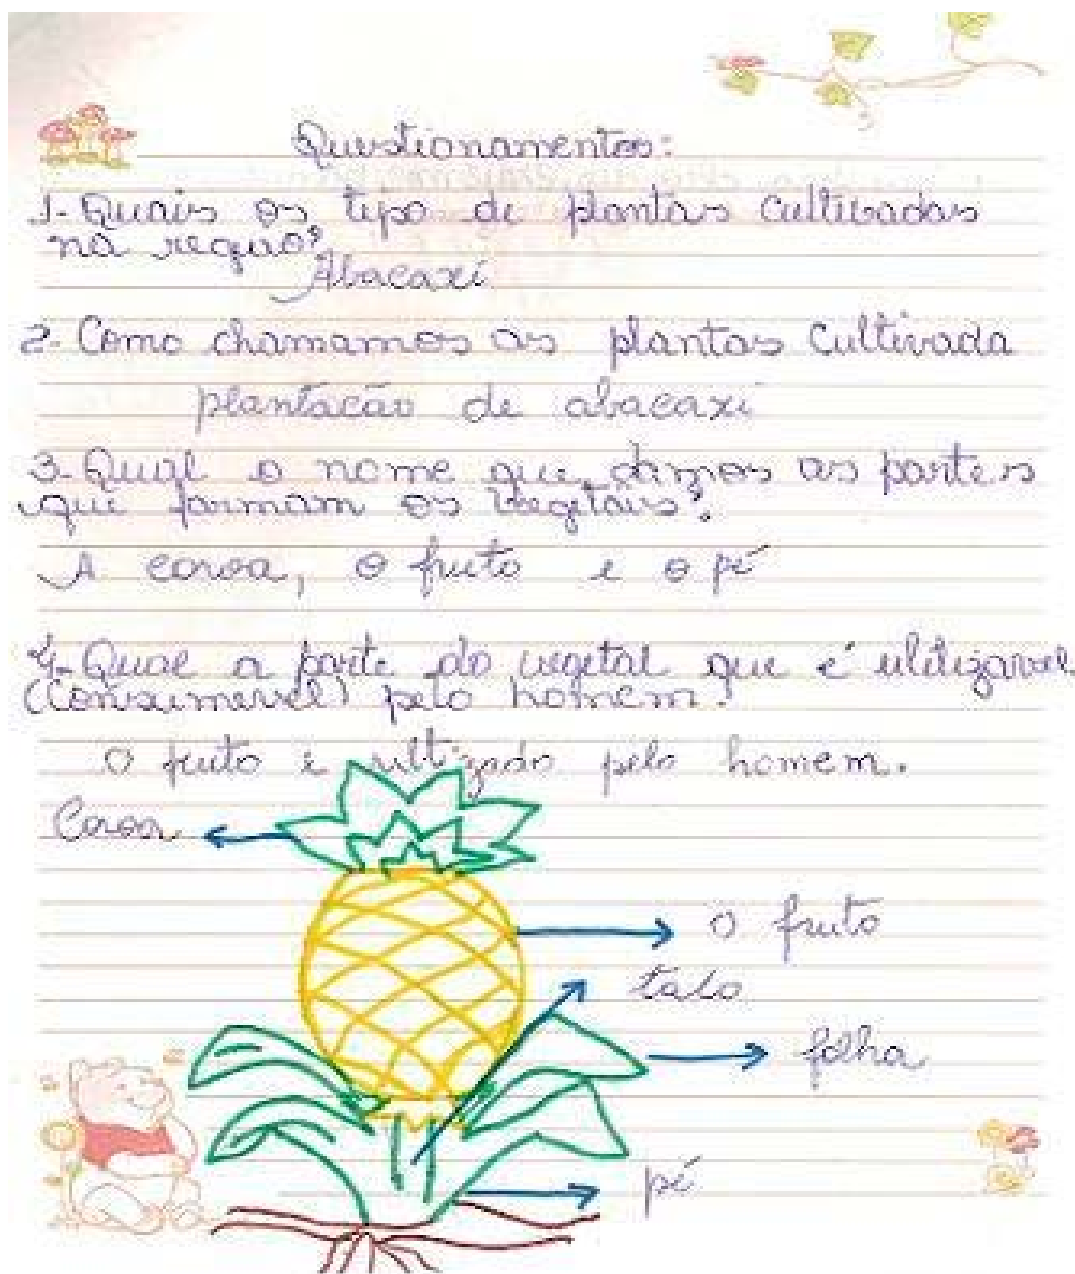 Questionamentos:
1- Quais os tipo de plantas cultivadas
na região?
Abacaxi
2- Como chamamos as plantas Cultivada
plantacão de abacaxi
3- Qual o nome que damos as partes
que formam os vegetais?
A coroa, o fruto e o pé
4- Qual a parte do vegetal que é
(Consumevel) pelo homem?
O fruto é ultizado pelo homem.
Coroa
o fruto
talo
folha
pé